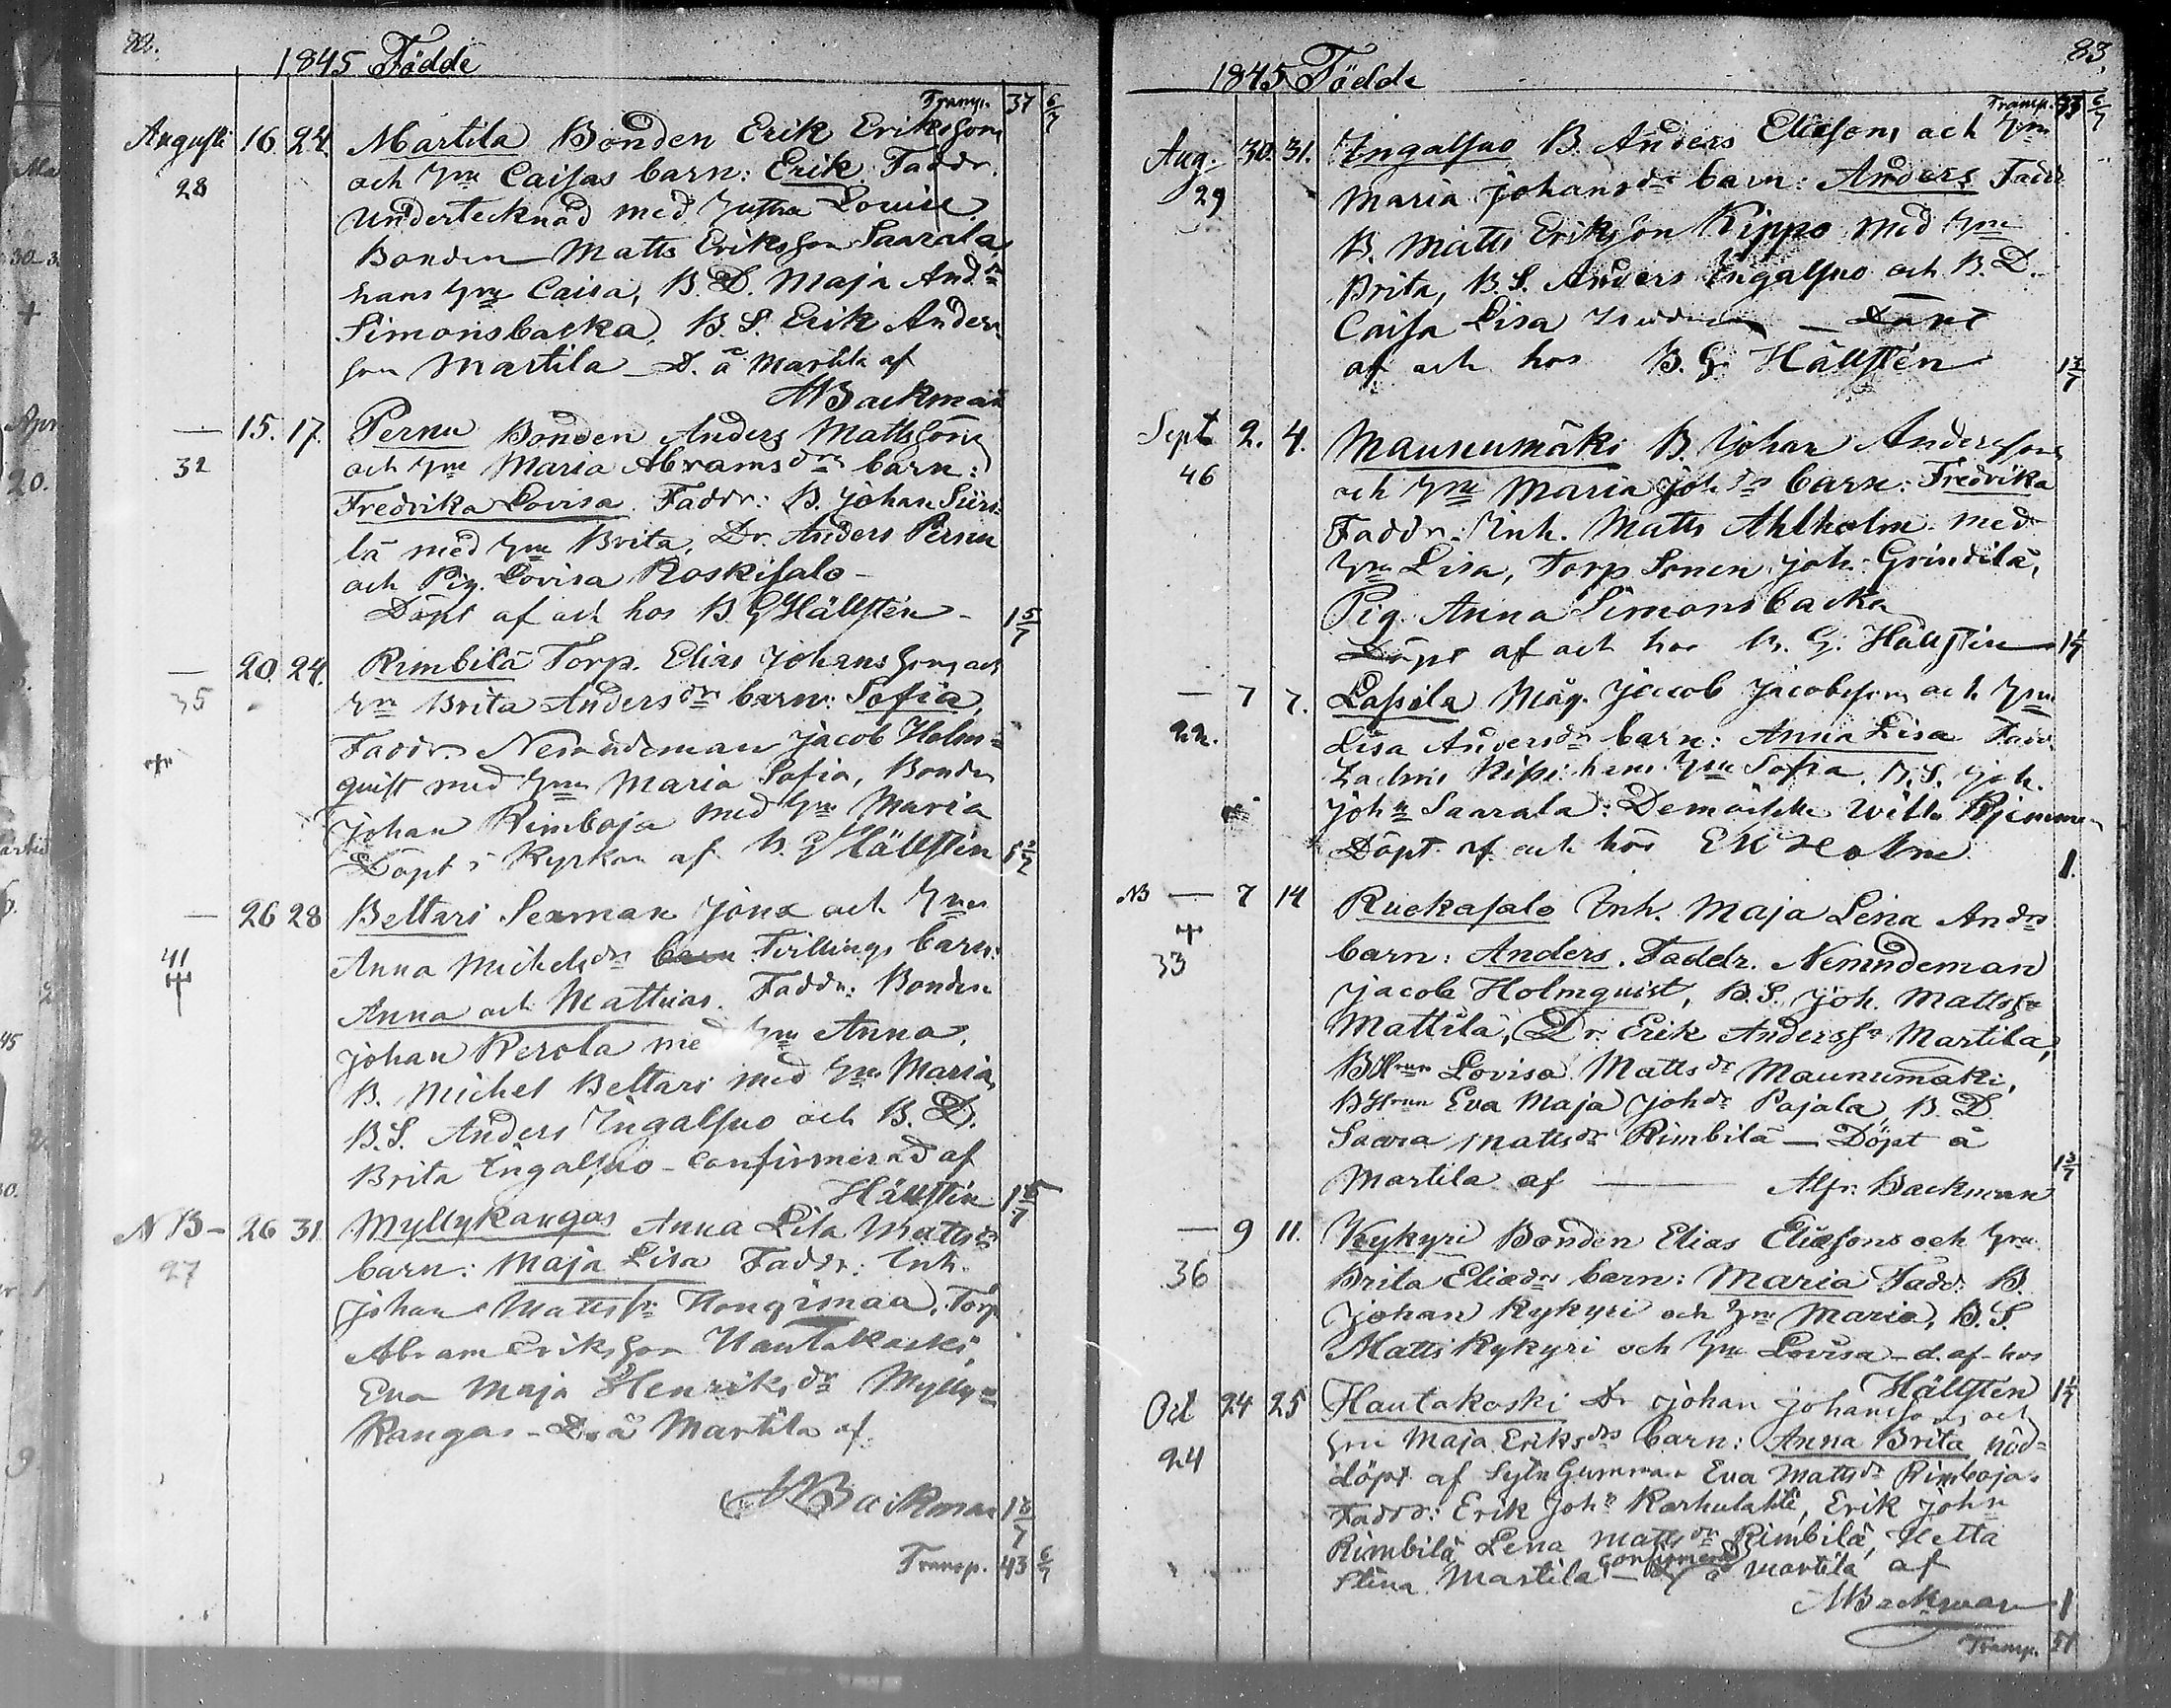 82.
1845 Födde
Transp. 37 6/7
Augusti 16. 24. Martila Bonden Erik Eriksson
28 och hu Caisas barn: Erik Faddr.
undertecknad med hustru Louise
Bonden Matts Eriksson Saarala,
hans hu Caisa, B. D. Maja And.
Simonsbacka, B. S. Erik Anders
son Martila D. å Martila af
ABackman
— 15. 17. Pernu Bonden Anders Mattsson
32 och hu Maria Abramsdrs barn:
Fredrika Lovisa. Faddr: B. Johan Siiri
lä med hu Brita, Dr. Anders Pernu
och Pig. Lovisa Koskisalo -
Döpt af och hos B G Hällsten - 1 5/7
— 20. 24. Rimbilä Torp. Elias Johansson och
35 hu Brita Andersdrs barn: Sofia,
Faddr. Nemndeman Jacob Holm=
quist med hu Maria Sofia, Bonden
Johan Rimboja med hu Maria
Döpt i Kyrkan af B. G Hällsten
— 26 28 Beltari Sexman Jonx och hu
41 Anna Michelsdrs barn Tvillings barn:
Anna och Mathias. Faddr: Bonden
Johan Kerola med hu Anna,
B. Michel Beltari med hu Maria,
B. S. Anders Ingalsuo och B. D.
Brita Ingalsuo - Confirmerad af
Hällstén
N B - 26 31 Myllykangas Anna Lisa Mattsdrs
27 barn: Maja Lisa Faddr: Inh.
Johan Mattss. Hongimaa, Torp
Abram Eriksson Hautakoski,
Eva Maja Henriksdr Mylly=
Kangas - D. å Martila af
ABackman
Transp. 43 6/7
83.
1845 Födde
Transp. 43 6/7
Aug. 30. 31. Ingalsuo B. Anders Eliasson och hu
29 Maria Johansdr barn: Anders Fadd
B. Matts Eriksson Kippo med hu
Brita, B. S. Anders Ingalsuo och B. D.
Caisa Lisa — Döpt
af och hos B. G. Hällstén
Sept 2. 4. Maunumäki B. Johan Andersson
46 och hu Maria Joh. drs barn: Fredrika
Faddr. Inh. Matts Ahlholm med
hu Lisa, Torp Sonen Joh. Grindilä,
Pig. Anna Simonsbacka
Döpt af och hos B. G. Hällsten
— 7 7. Lassila Måg. Jacob Jacobsson och hu
22. Lisa Andersdr barn: Anna Lisa Fadd.
Zachris hans hu Sofia, B. S. Joh.
John Saarala: Demoiselle
Döpt af och hos E K Holm 1.
NB — 7 14 Ruekasalo Inh. Maja Lena Andrs
33 barn: Anders. Faddr. Nemndeman
Jacob Holmquist, B. S. Joh. Mattss
Mattila, Dr. Erik Anderss Martila,
Lovisa Mattsdr Maunumäki,
Eva Maja Johdr Pajala, B. D
Saara Mattsdr Rimbilä — Döpt å
Martila af — Alfr: Backman
— 9 11. Kykyri Bonden Elias Eliæsons och hu
36 Brita Eliædrs barn: Maria Fadd: B.
Johan Kykyri och hu Maria, B. S.
Matts Kykyri och hu Lovisa - d. af hos
Hällsten
Oct 24 25 Hautakoski Dr Johan Johansson och
24 hu Maja Eriksdrs barn: Anna Brita nöd=
döpt af Sytn Gumman Eva Mattsdr Rimboja.
Faddr: Erik John Karhulahti, Erik John
Rimbilä, Lena Mattsdr Rimbilä, Hetta
Stina Martila — confirmerad å Martila af
ABackman 1
Transp. 51